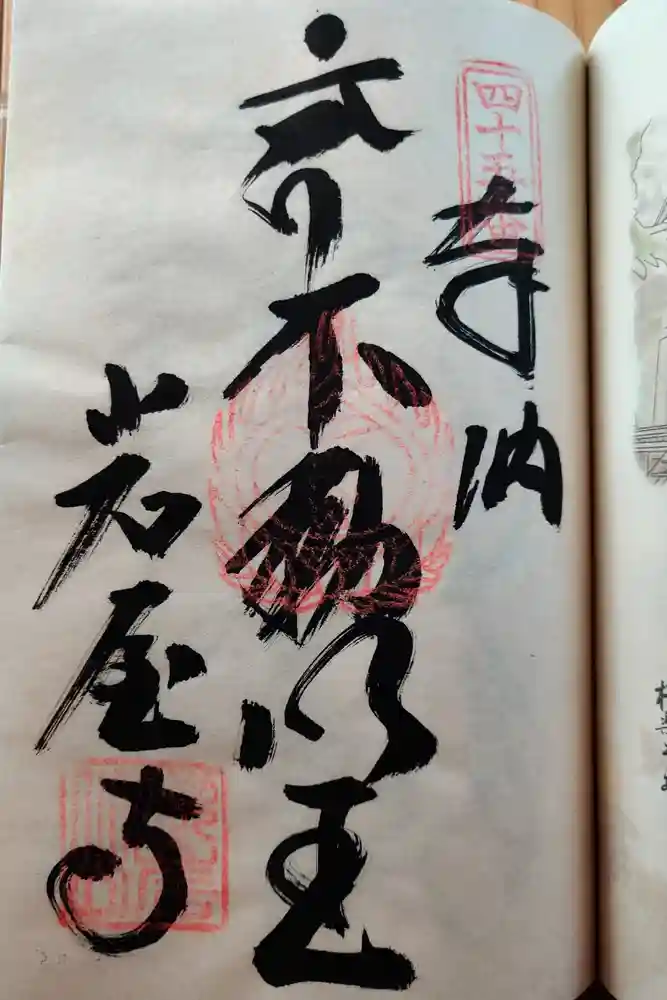 四十五番
奉納
不動明王
岩屋寺